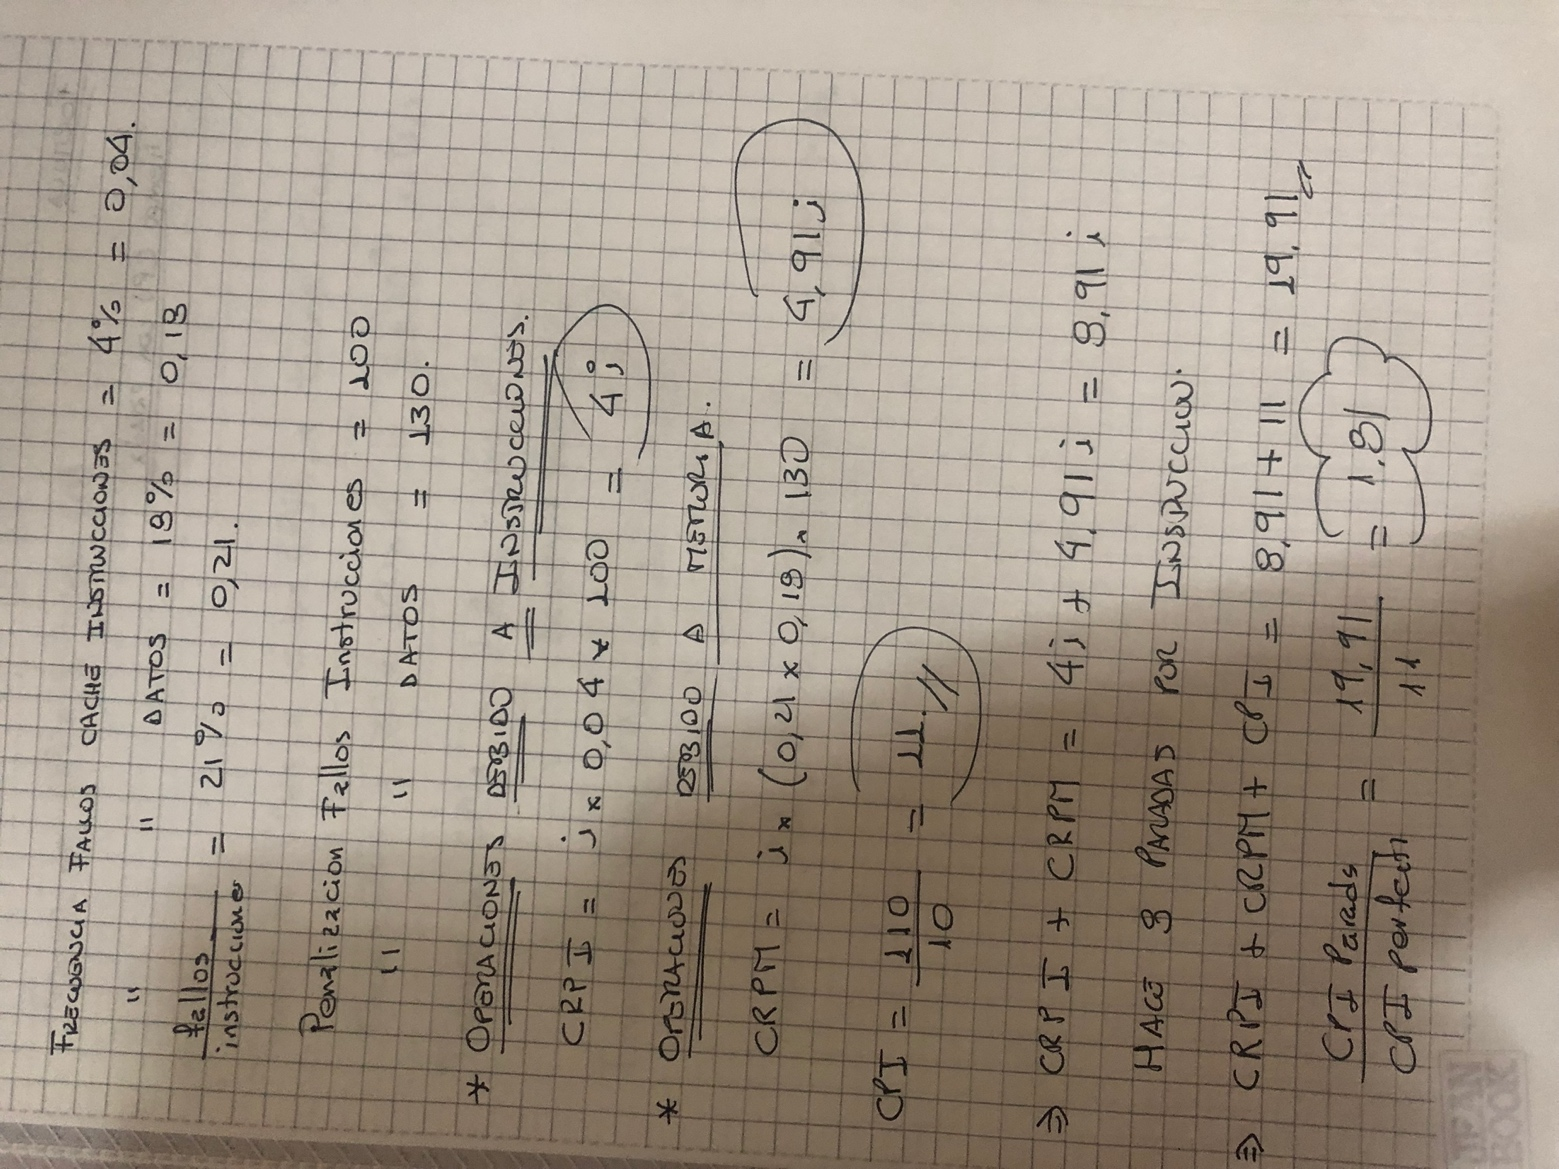 FRECUENCIA FALLOS CACHE INSTRUCCIONES = 4% = 0,04.
" " DATOS = 18% = 0,18
fallos / instrucciones = 21% = 0,21.
Penalizacion Fallos Instrucciones = 100
" " DATOS = 130.
* OPERACIONES DEBIDO A INSTRUCCIONES.
CRPI = i x 0,04 x 100 = 4i
* OPERACIONES DEBIDO A MEMORIA.
CRPM = i x (0,21 x 0,18) x 130 = 4,91i
CPI = 110 / 10 = 11. //
⇒ CRPI + CRPM = 4i + 4,91i = 8,91 i
HACE 8 PARADAS POR INSTRUCCION.
⇒ CRPI + CRPM + CPI = 8,91 + 11 = 19,91 //
CPI Parads / CPI perfecti = 19,91 / 11 = 1.81
BOOK